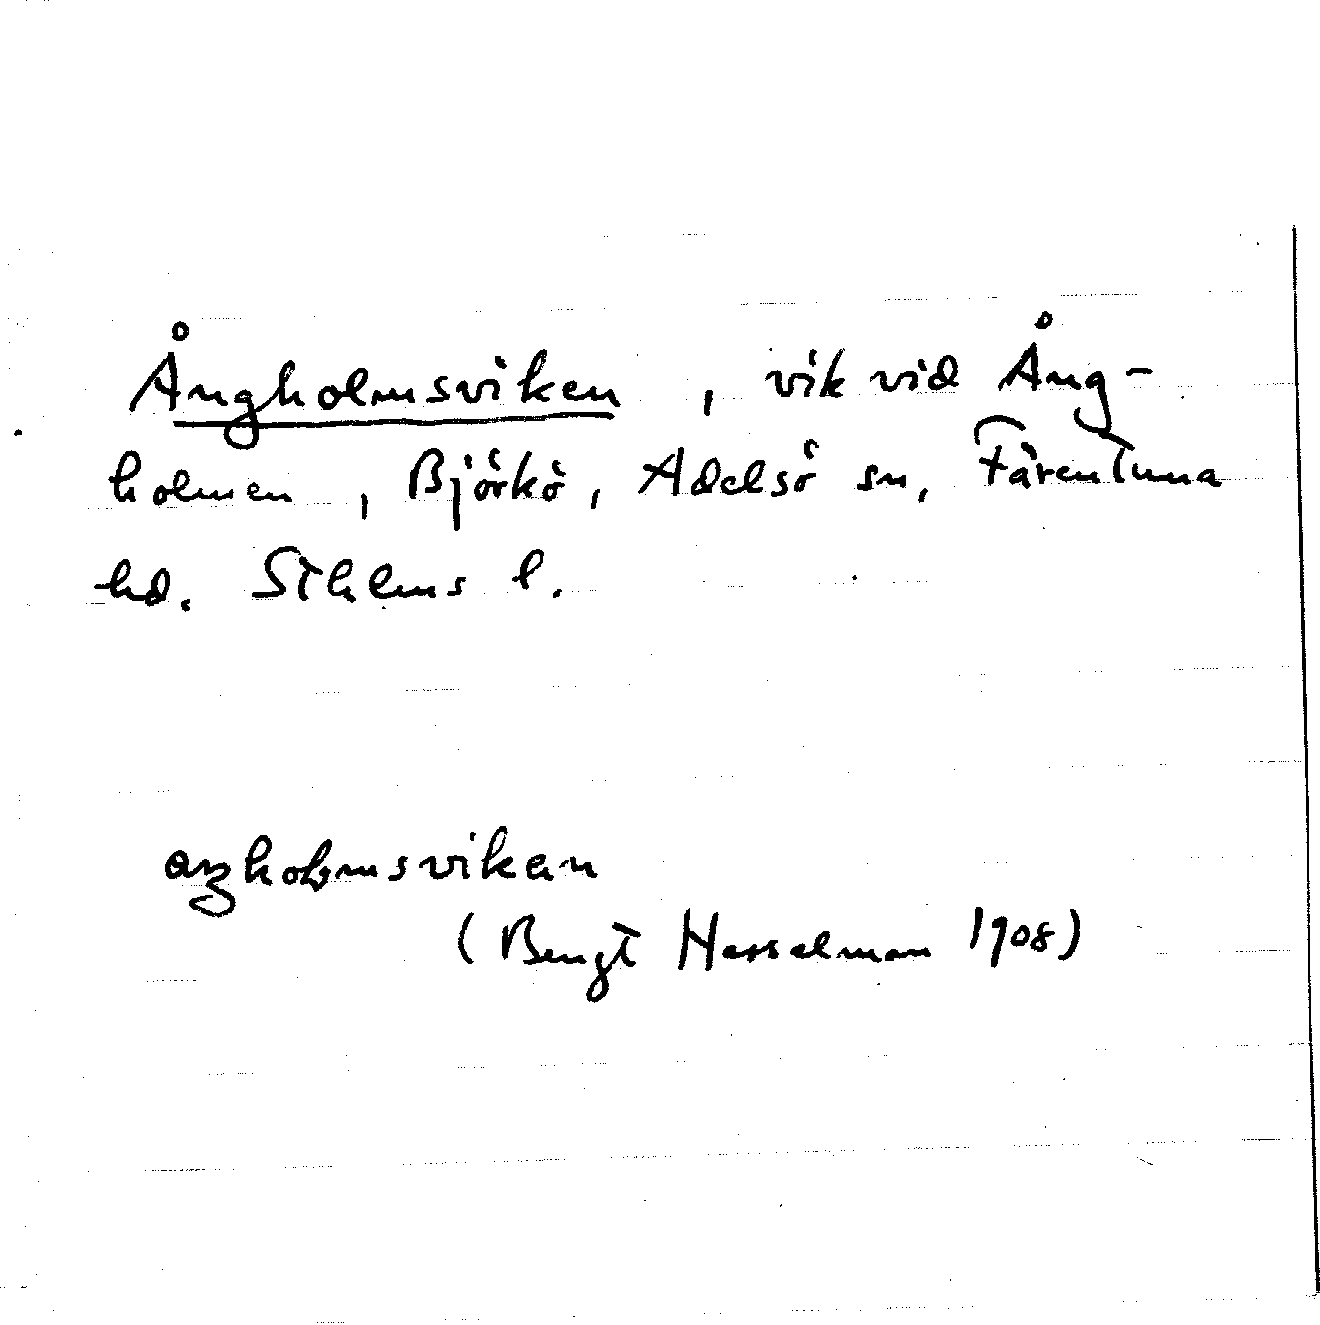 Ångholmsviken, vik vid Ång-
holmen, Björkö, Adelsö sn, Färentuna
hd. Sthlms l.
(Bengt Hesselman 1908)